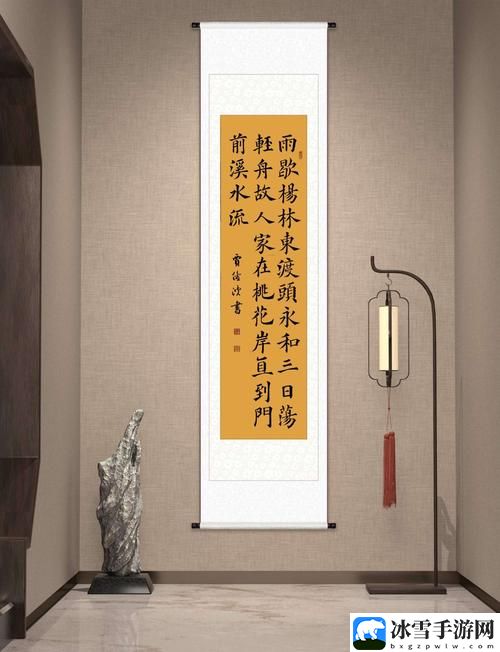 雨歇楊林東渡頭永和三日蕩
輕舟故人家在桃花岸直到門
前溪水流
書
冰雪手游网
bxgzpwlw.com